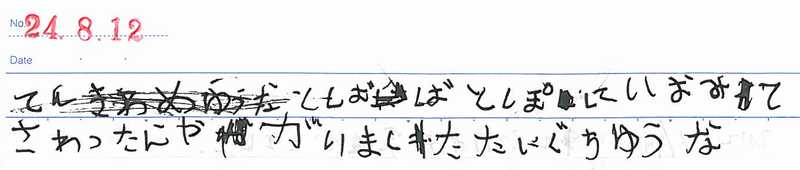 No.
24.8.12
Date
てん ともおばとしぽしていおみて
さわったんやがりましたたいぐちゆうな